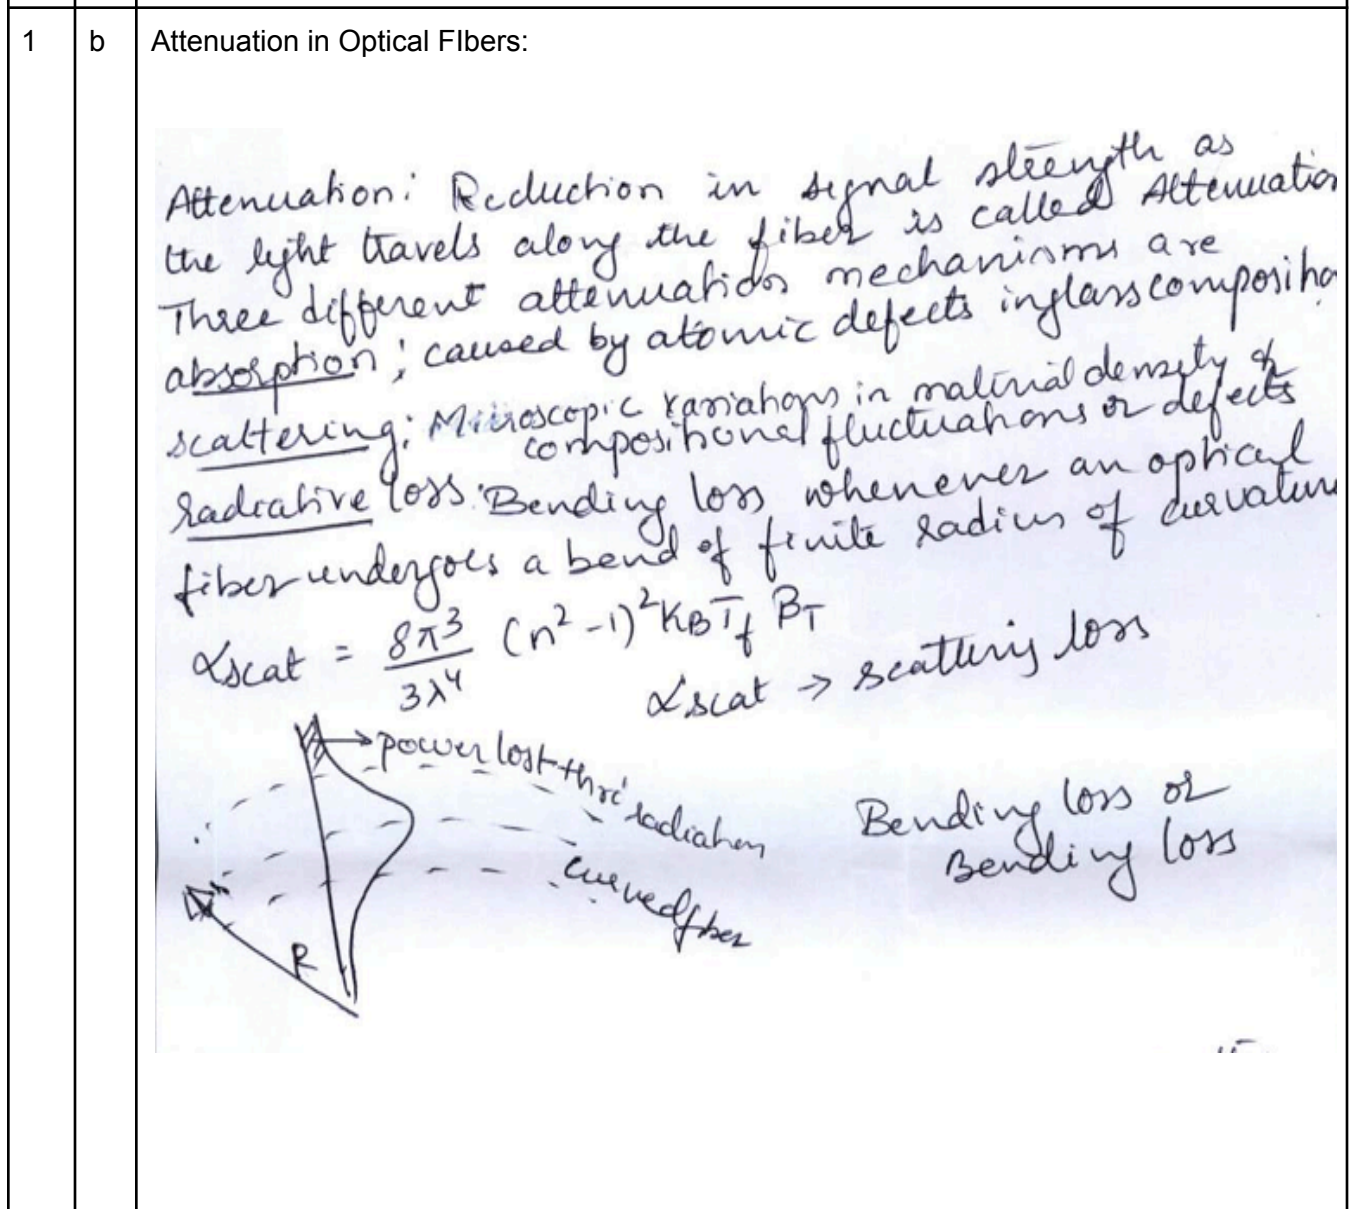 1 b Attenuation in Optical FIbers:
Attenuation: Reduction in signal strength as
the light travels along the fiber is called Attenuation
Three different attenuation mechanisms are
absorption; caused by atomic defects in glass composition
scattering: Microscopic variations in material density &
compositional fluctuations or defects
radiative loss: Bending loss whenever an optical
fiber undergoes a bend of finite radius of curvature
αscat = 8π³/3λ⁴ (n² -1)² KB Tf BT
αscat → scattering loss
power lost thro' radiation
curved fiber
R
Bending loss or
Bending loss